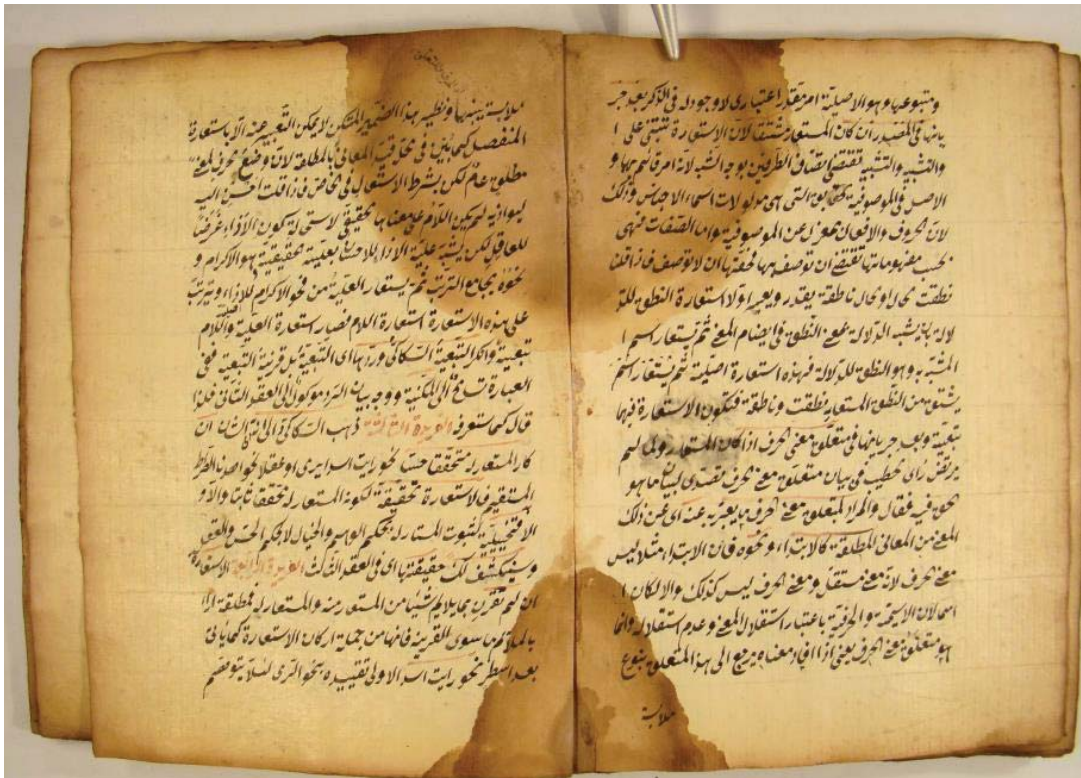 ومتبوعها وهو الاصلية امر مقدر اعتبارى لا وجود له فى الذكر بعد جر
يانها فى المصدر ان كان المستعار مشتقا لان الاستعارة تبتنى على ا
لتشبيه والتشبيه يقتضى اتصاف الطرفين بوجه الشبه لانه امر قائم بهما و
الاصل فى الموصوفية التى هى مدلولات اسماء الاجناس وذلك
لان الحروف والافعال بمعزل عن الموصوفية واما الصفات فهى
بحسب مفهوماتها تقتضى ان توصف بها فحقها ان لا توصف فاذا قلنا
نطقت الحال او الحال ناطقة يقدر ويعبر اولا استعارة النطق للد
لالة بان يشبه الدلالة بمعنى النطق فى ايضاح المعنى ثم يستعار اسم ا
لمشبه به وهو النطق للدلالة فهذه استعارة اصلية ثم يستعار اسم
يشتق من النطق المستعار نطقت وناطقة فتكون الاستعارة فيها
تبعية وبعد جريانها فى متعلق معنى الحرف اذا كان المستعار ولما لم
يرتض راى الخطيب فى بيان متعلق معنى الحرف تصدى لبيان ما هو
الحق فيه فقال والمراد بمتعلق معنى الحرف ما يعبر به عنه اى عن ذلك
المعنى من المعانى المطلقة كالابتداء ونحوه فان الابتداء مثلا ليس
معنى الحرف لانه معنى مستقل ومعنى الحرف ليس كذلك والا لكان ا
سما لان الاسمية والحرفية باعتبار استقلال المعنى وعدم استقلاله وانما
هو متعلق معنى الحرف يعنى اذا افاد معناه يرجع الى هذا المتعلق بنوع
ملابسة
ملابسة بينهما ونظيره هذا الضمير المتمكن لا يمكن التعبير عنه الا باستعارة
المنفصل كما بين فى محل قيد المعانى بالمطلقة لان وضع الحرف لمعنى
مطلق عام لكن بشرط الاستعمال فى الخاص فاذا قلت احسن اليه
ليوذيه لم يكن اللام على معناها الحقيقى لاستحالة كون الاذاء غرضا
للعاقل لكن يشبه علية الاذاء للاحسان بعلية حقيقية هو الاكرام و
نحوه بجامع الترتب ثم يستعار العلية من نحو الاكرام للاذاء ويترتب
على هذه الاستعارة استعارة اللام فصار استعارة العلية واللام
تبعية وانكر التبعية السكاكى وردها اى التبعية بل قرينة التبعية ففى
العبارة تسامح الى المكنية ووجه بيان الرد موكول الى العقد الثانى فلذا
قال كما ستعرفه الفريدة الثالثة ذهب السكاكى الى انه ان
كان المستعار له متحققا حسا نحو رايت اسدا يرى او عقلا نحو اهدنا الصراط
المستقيم فالاستعارة تحقيقية لكون المستعار له محققا ثابتا والا و
الا فتخييلية لثبوت المستعار له بحكم الوهم والخيال لا بحكم الحس والعقل
وسينكشف لك حقيقتها اى فى العقد الثالث الفريدة الرابعة الاستعارة
ان لم تقترن بما يلايم شيئا من المستعار منه والمستعار له فمطلقة اراد
بالملايم ما سوى القرينة فانها من جملة اركان الاستعارة كما ياتى
بعد اسطر نحو رايت اسدا الاولى تقييده بنحو الترى لئلا يتوهم